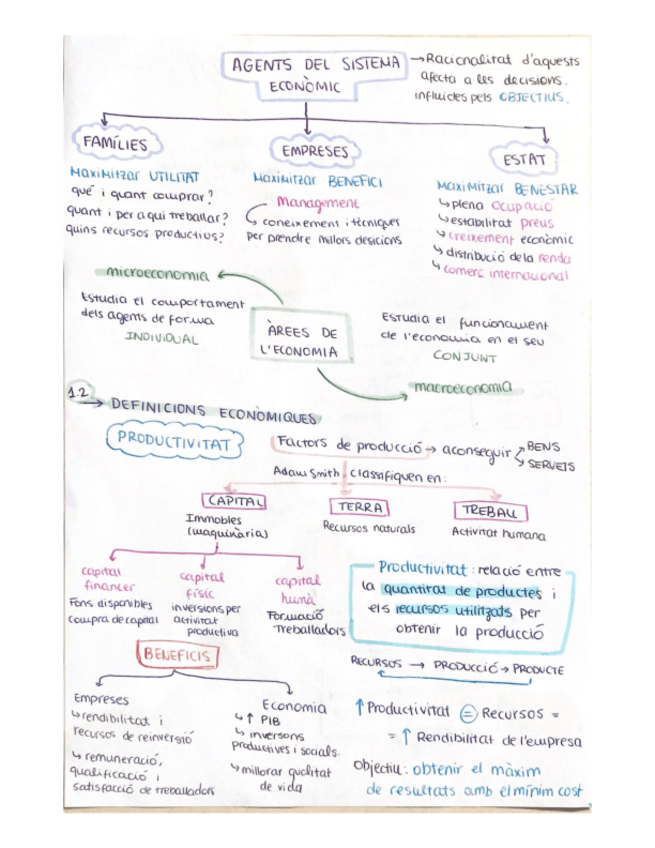 AGENTS DEL SISTEMA
ECONÒMIC
→Racionalitat d'aquests
afecta a les decisions.
influïdes pels OBJECTIUS.
FAMÍLIES
EMPRESES
ESTAT
Maximitzar UTILITAT
què i quant comprar?
quant i per a qui treballar?
quins recursos productius?
Maximitzar BENEFICI
Management
coneixement i tècniques
per prendre millors desicions
Maximitzar BENESTAR
↳plena ocupació
↳estabilitat preus
↳creixement econòmic
↳distribució de la renda
↳comerç internacional
microeconomia
Estudia el comportament
dels agents de forma
INDIVIDUAL
ÀREES DE
L'ECONOMIA
Estudia el funcionament
de l'economia en el seu
CONJUNT
macroeconomia
1.2
→ DEFINICIONS ECONÒMIQUES
PRODUCTIVITAT
Factors de producció → aconseguir
BENS
SERVEIS
Adam Smith classifiquen en:
CAPITAL
TERRA
TREBALL
Immobles
(maquinària)
Recursos naturals
Activitat humana
capital
financer
Fons disponibles
compra de capital
capital
físic
inversions per
activitat
productiva
capital
humà
Formació
Treballadors
Productivitat: relació entre
la quantitat de productes i
els recursos utilitzats per
obtenir la producció
BENEFICIS
RECURSOS → PRODUCCIÓ → PRODUCTE
Empreses
↳rendibilitat i
recursos de reinversió
↳remuneració,
qualificació i
satisfacció de treballadors
Economia
↳↑ PIB
↳ inversons
productives i socials.
↳millorar qualitat
de vida
↑Productivitat = Recursos =
= ↑ Rendibilitat de l'empresa
Objectiu: obtenir el màxim
de resultats amb el mínim cost